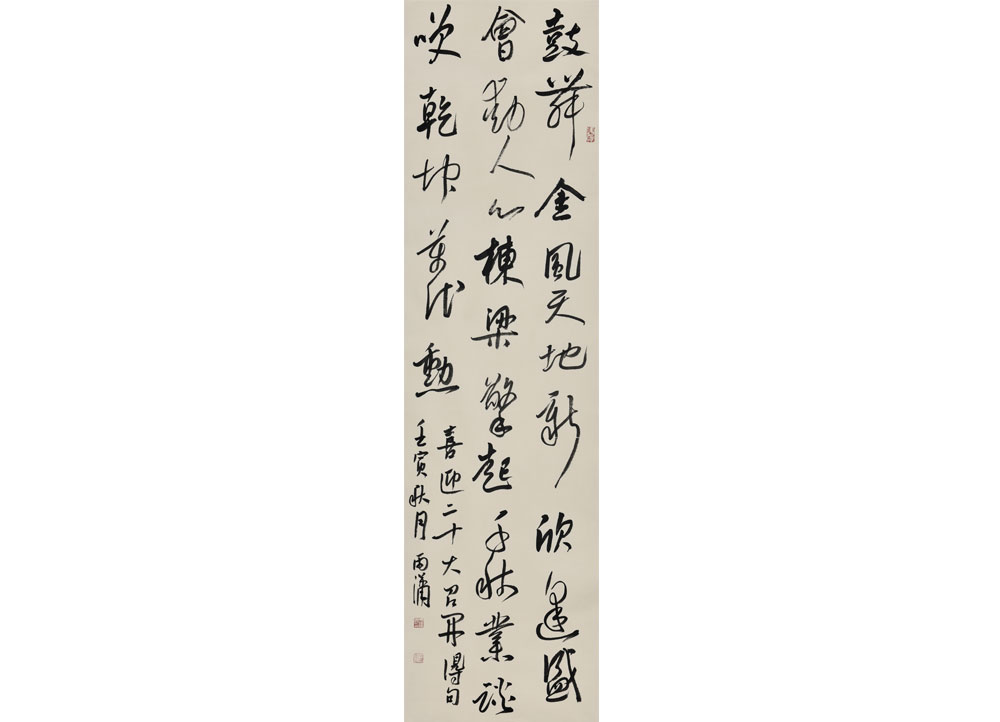 鼓舞金風天地新欣逢盛
會勸人心棟梁擎起千秋業談
笑乾坤萬代勳
喜迎二十大召開得句
壬寅秋月雨瀟